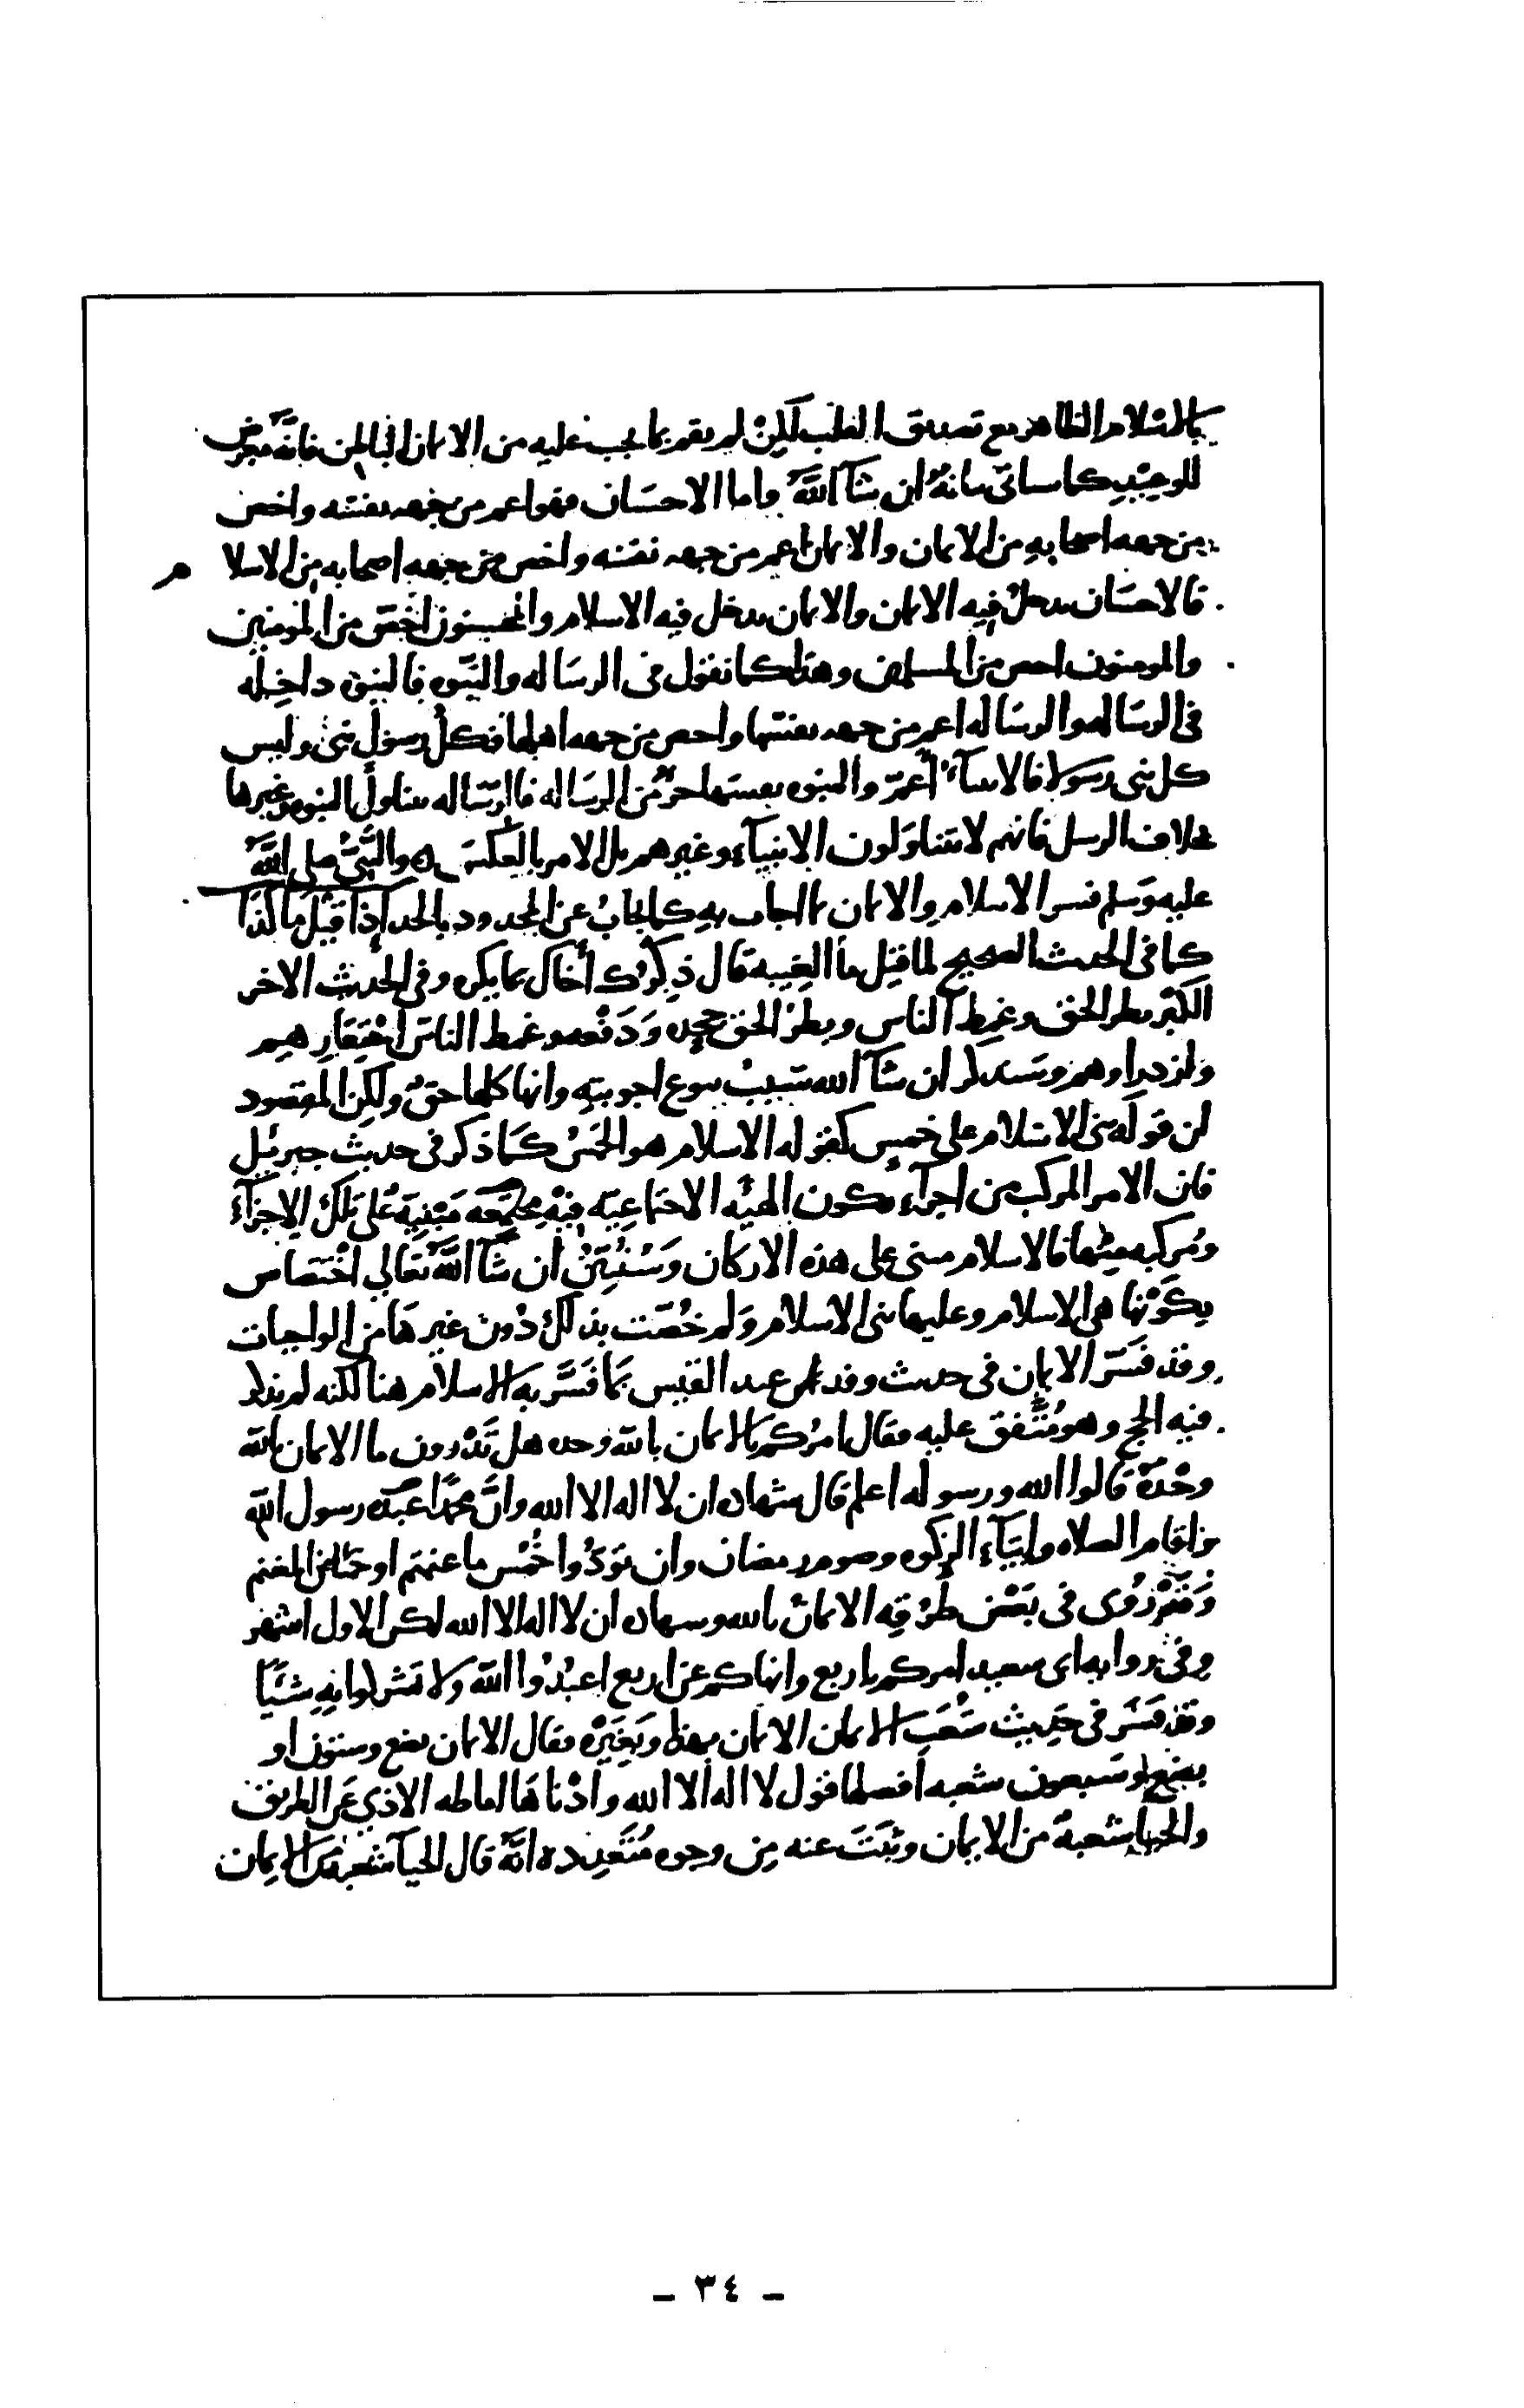 بالاسلام الظاهر مع تصديق القلب لكن لم يقم بما يجب عليه من الايمان الباطن فانه معرض
للوعيد كما سياتى بيانه ان شآ الله واما الاحسان فهو اعم من جهه نفسه واخص
من جهه اصحابه من الايمان والايمان اعم من جهه نفسه واخص من جهه اصحابه من الاسلام
فالاحسان يدخل فيه الايمان والايمان يدخل فيه الاسلام والمحسنون اخص من المومنين
والمومنون اخص من المسلمين وهذا كما نقول فى الرساله والنبوه فالنبوه داخله
فى الرساله والرساله اعم من جهه نفسها واخص من جهه اهلها فكل رسول نبى وليس
كل نبى رسولا فالانبيآء أعم والنبوه نفسها جزء من الرساله فالرساله تتناول النبوه وغيرها
بخلاف الرسل فانهم لا يتناولون الانبيآء وغيرهم بل الامر بالعكس ه والنبى صلى الله
عليه وسلم فسر الاسلام والايمان بما اجاب به كما يجاب عن المحدود بالحد إذا قيل ما كذا
كما فى الحديث الصحيح لما قيل ما الغيبه قال ذكرك أخاك بما يكره وفى الحديث الاخر
الكبر بطر الحق وغمط الناس وبطر الحق جحده ودفعه وغمط الناس احتقارهم
وازدراوهم وسنذكر ان شآ الله سبب تنوع اجوبته وانها كلها حق ولكن المقصود
ان قوله بنى الاسلام على خمس كقوله الاسلام هو الخمس كما ذكر فى حديث جبريل
فان الامر المركب من اجزآء تكون الهيئه الاجتماعيه فيه مجتمعه مبنية على تلك الاجزآء
ومركبه منها فالاسلام مبنى على هذه الاركان وسنبين ان شآ الله تعالى اختصاص
بكونها هى الاسلام وعليها بنى الاسلام ولم خصت بذلك دون غيرها من الواجبات
وقد فسر الايمان فى حديث وفد عبد القيس بما فسر به الاسلام هنا لكنه لم يذكر
فيه الحج وهو متفق عليه فقال امركم بالايمان بالله وحده هل تدرون ما الايمان بالله
وحده قالوا الله ورسوله اعلم قال شهاده ان لا اله الا الله وان محمدا عبده رسول الله
واقام الصلاه وايتآء الزكوه وصوم رمضان وان تودوا خمس ما غنمتم او خمسا من المغنم
وقد روى فى بعض طرقه الايمان بالله وشهاده ان لا اله الا الله لكن الاول اشهر
وفى روايه ابى سعيد امركم باربع وانهاكم عن اربع اعبدوا الله ولا تشركوا به شيئا
وقد فسر فى حديث شعب الايمان الايمان بهذا وبغيره فقال الايمان بضع وستون او
بضع وسبعون شعبه أفضلها قول لا اله الا الله وادناها اماطه الاذى عن الطريق
والحيا شعبة من الايمان وثبت عنه من وجوه متعدده انه قال الحيآ شعبة من الايمان
- ٣٤ -